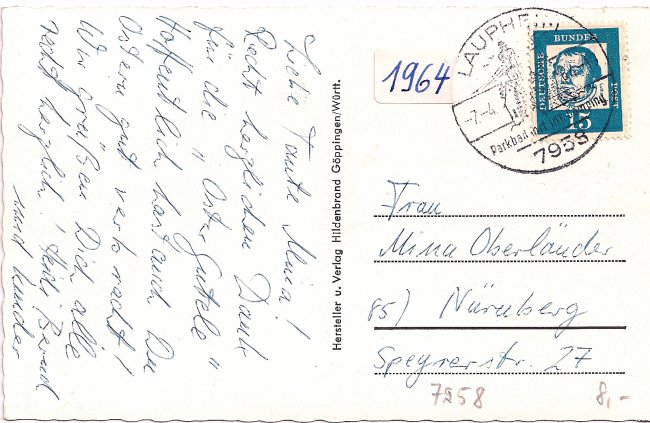 Liebe Tante Mina!
Recht herzlichen Dank
für die "Ostergutele"
Hoffentlich hast auch Du
Ostern gut verbracht!
Wir grüßen Dich alle
recht herzlich! Heidi Bernd
und Kinder
Hersteller u. Verlag Hildenbrand Göppingen/Württ.
1964
LAUPHEIM
-7.-4.
Parkbad
7958
DEUTSCHE
BUNDES
POST
15
Frau
Mina Oberländer
85) Nürnberg
Speyrerstr. 27
7958
8,-